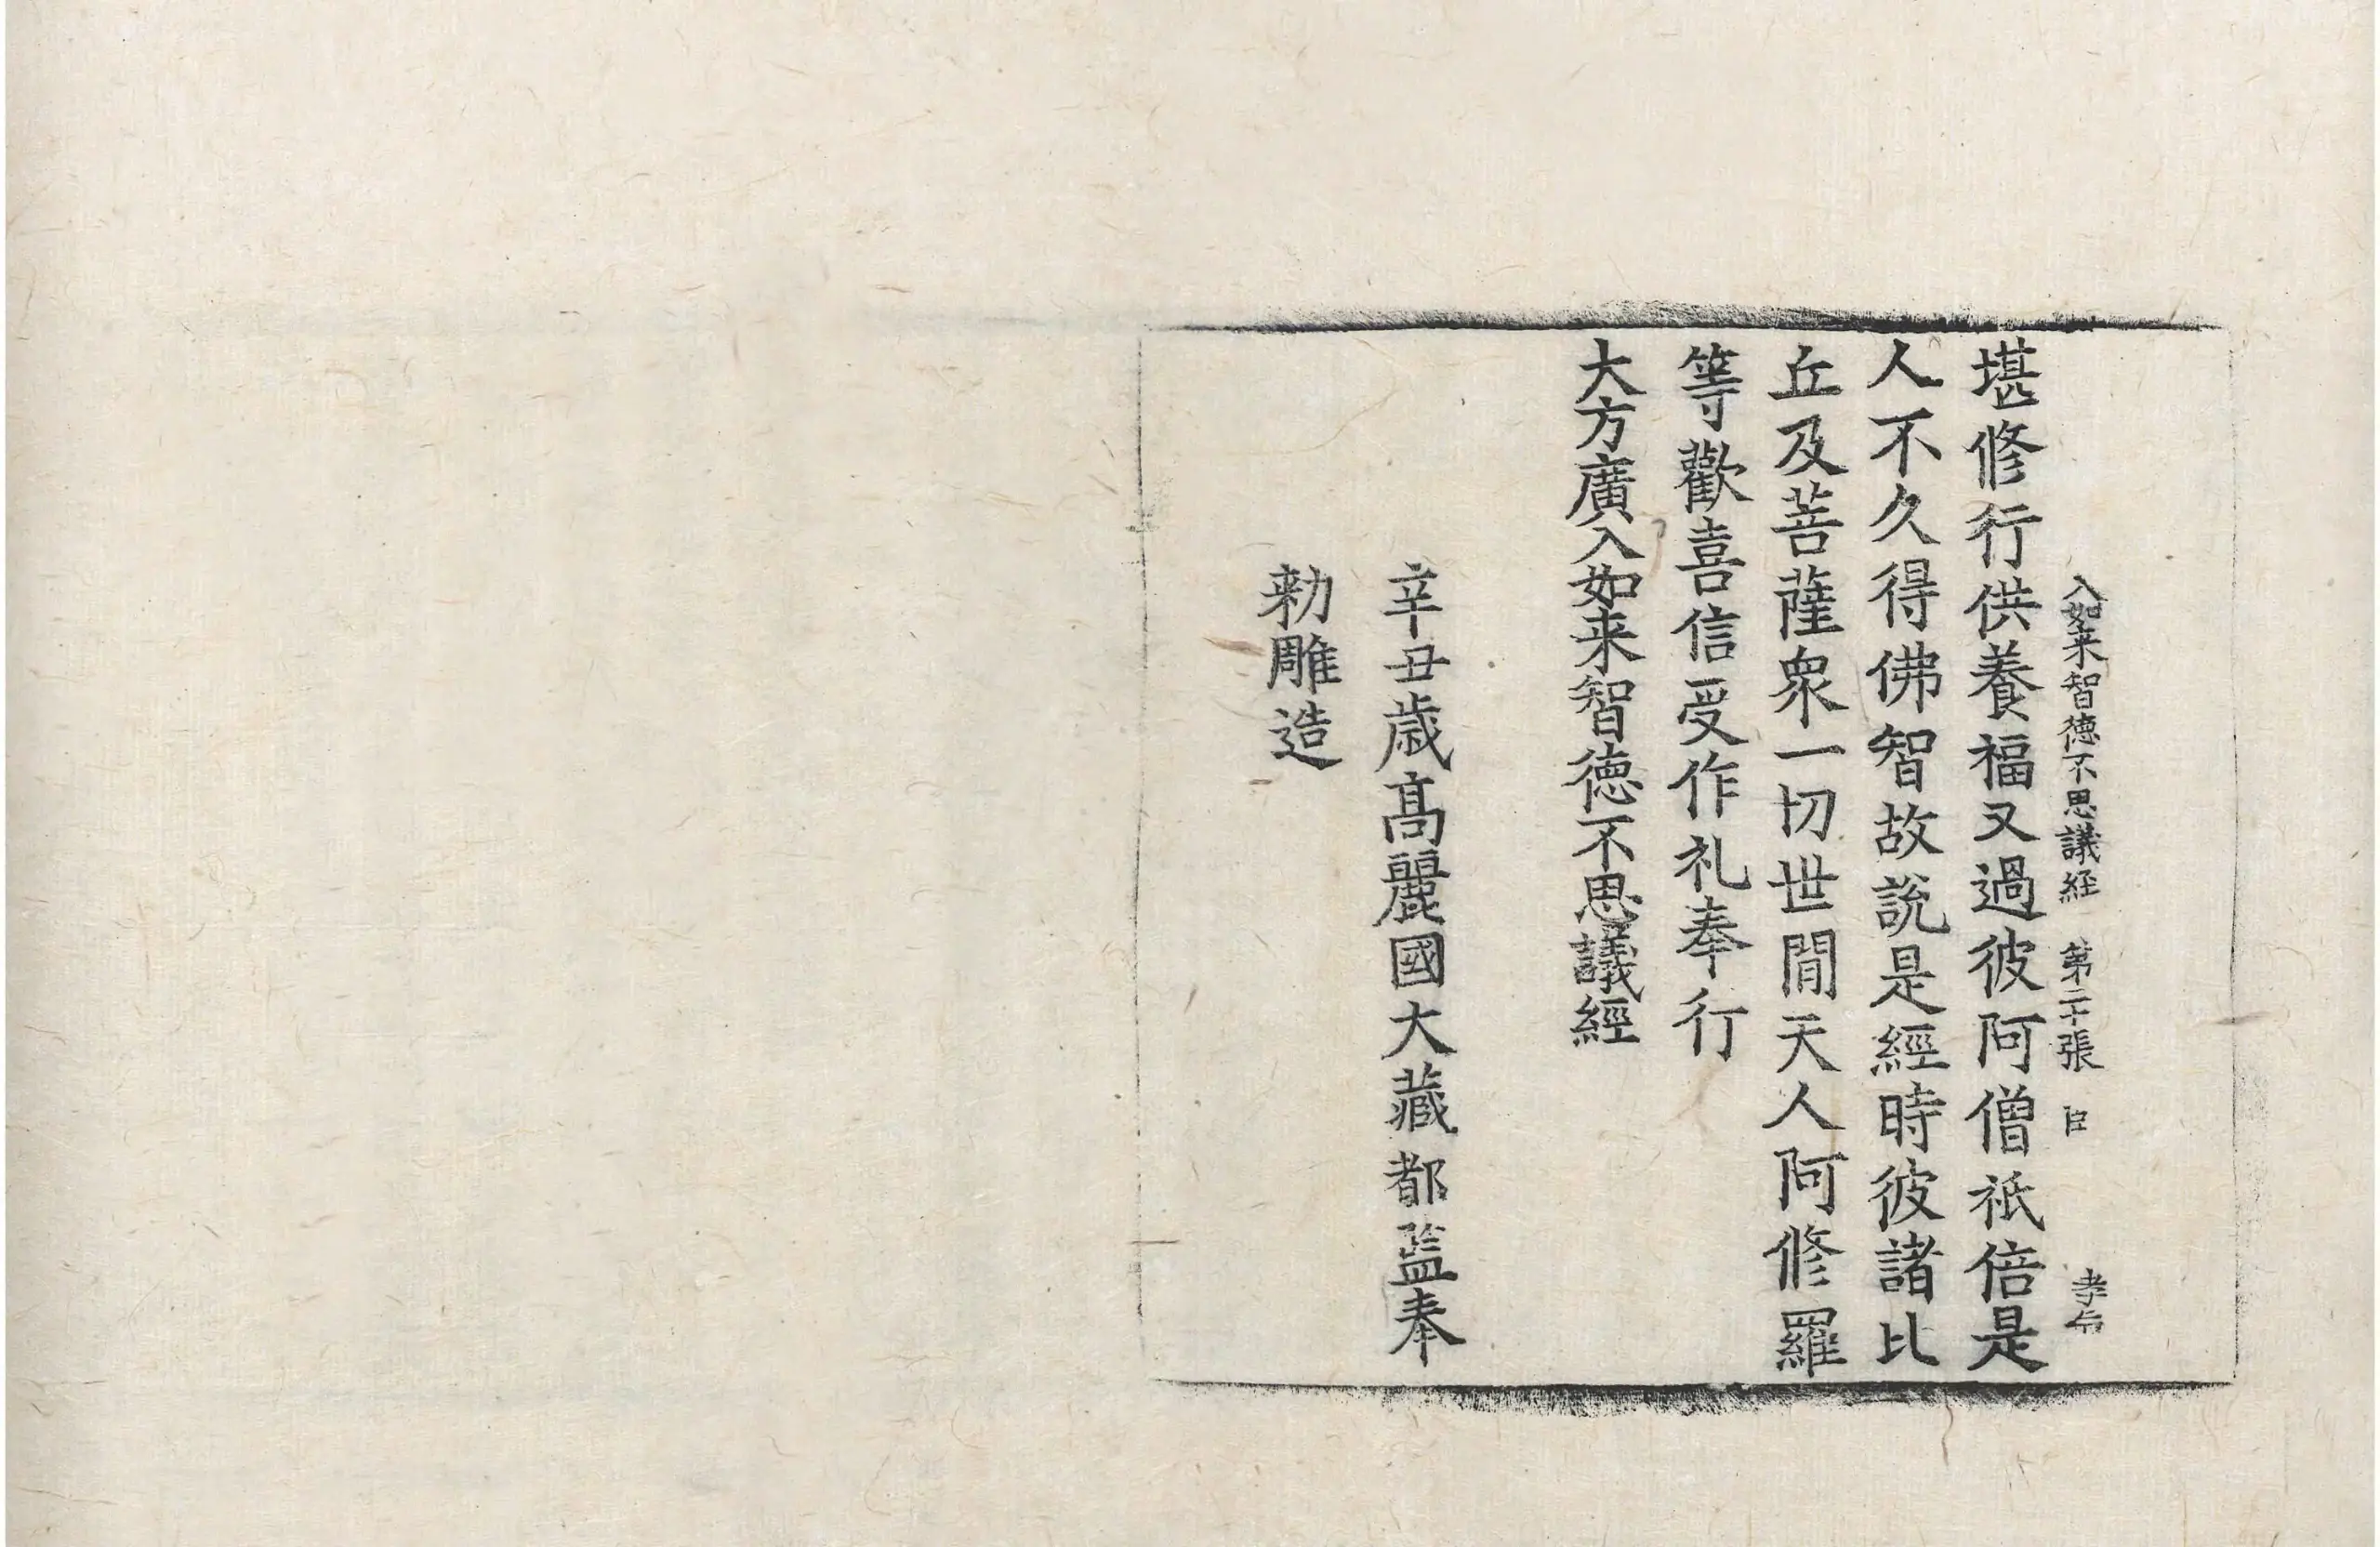 入如来智德不思議経 第二十張 臣 孝
堪修行供養福又過彼阿僧祇倍是
人不久得佛智故說是經時彼諸比
丘及菩薩衆一切世閒天人阿修羅
等歡喜信受作礼奉行
大方廣入如来智德不思議經
辛丑歳髙麗國大藏都監奉
勑雕造